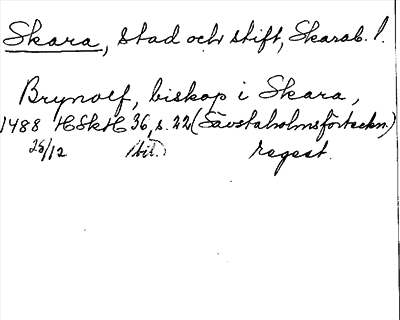 Skara, stad och stift, Skarab. l.
Brynolf, biskop i Skara,
1488 HSkH 36, s. 22 (Sävstaholmsförteckn.)
25/12 regest.